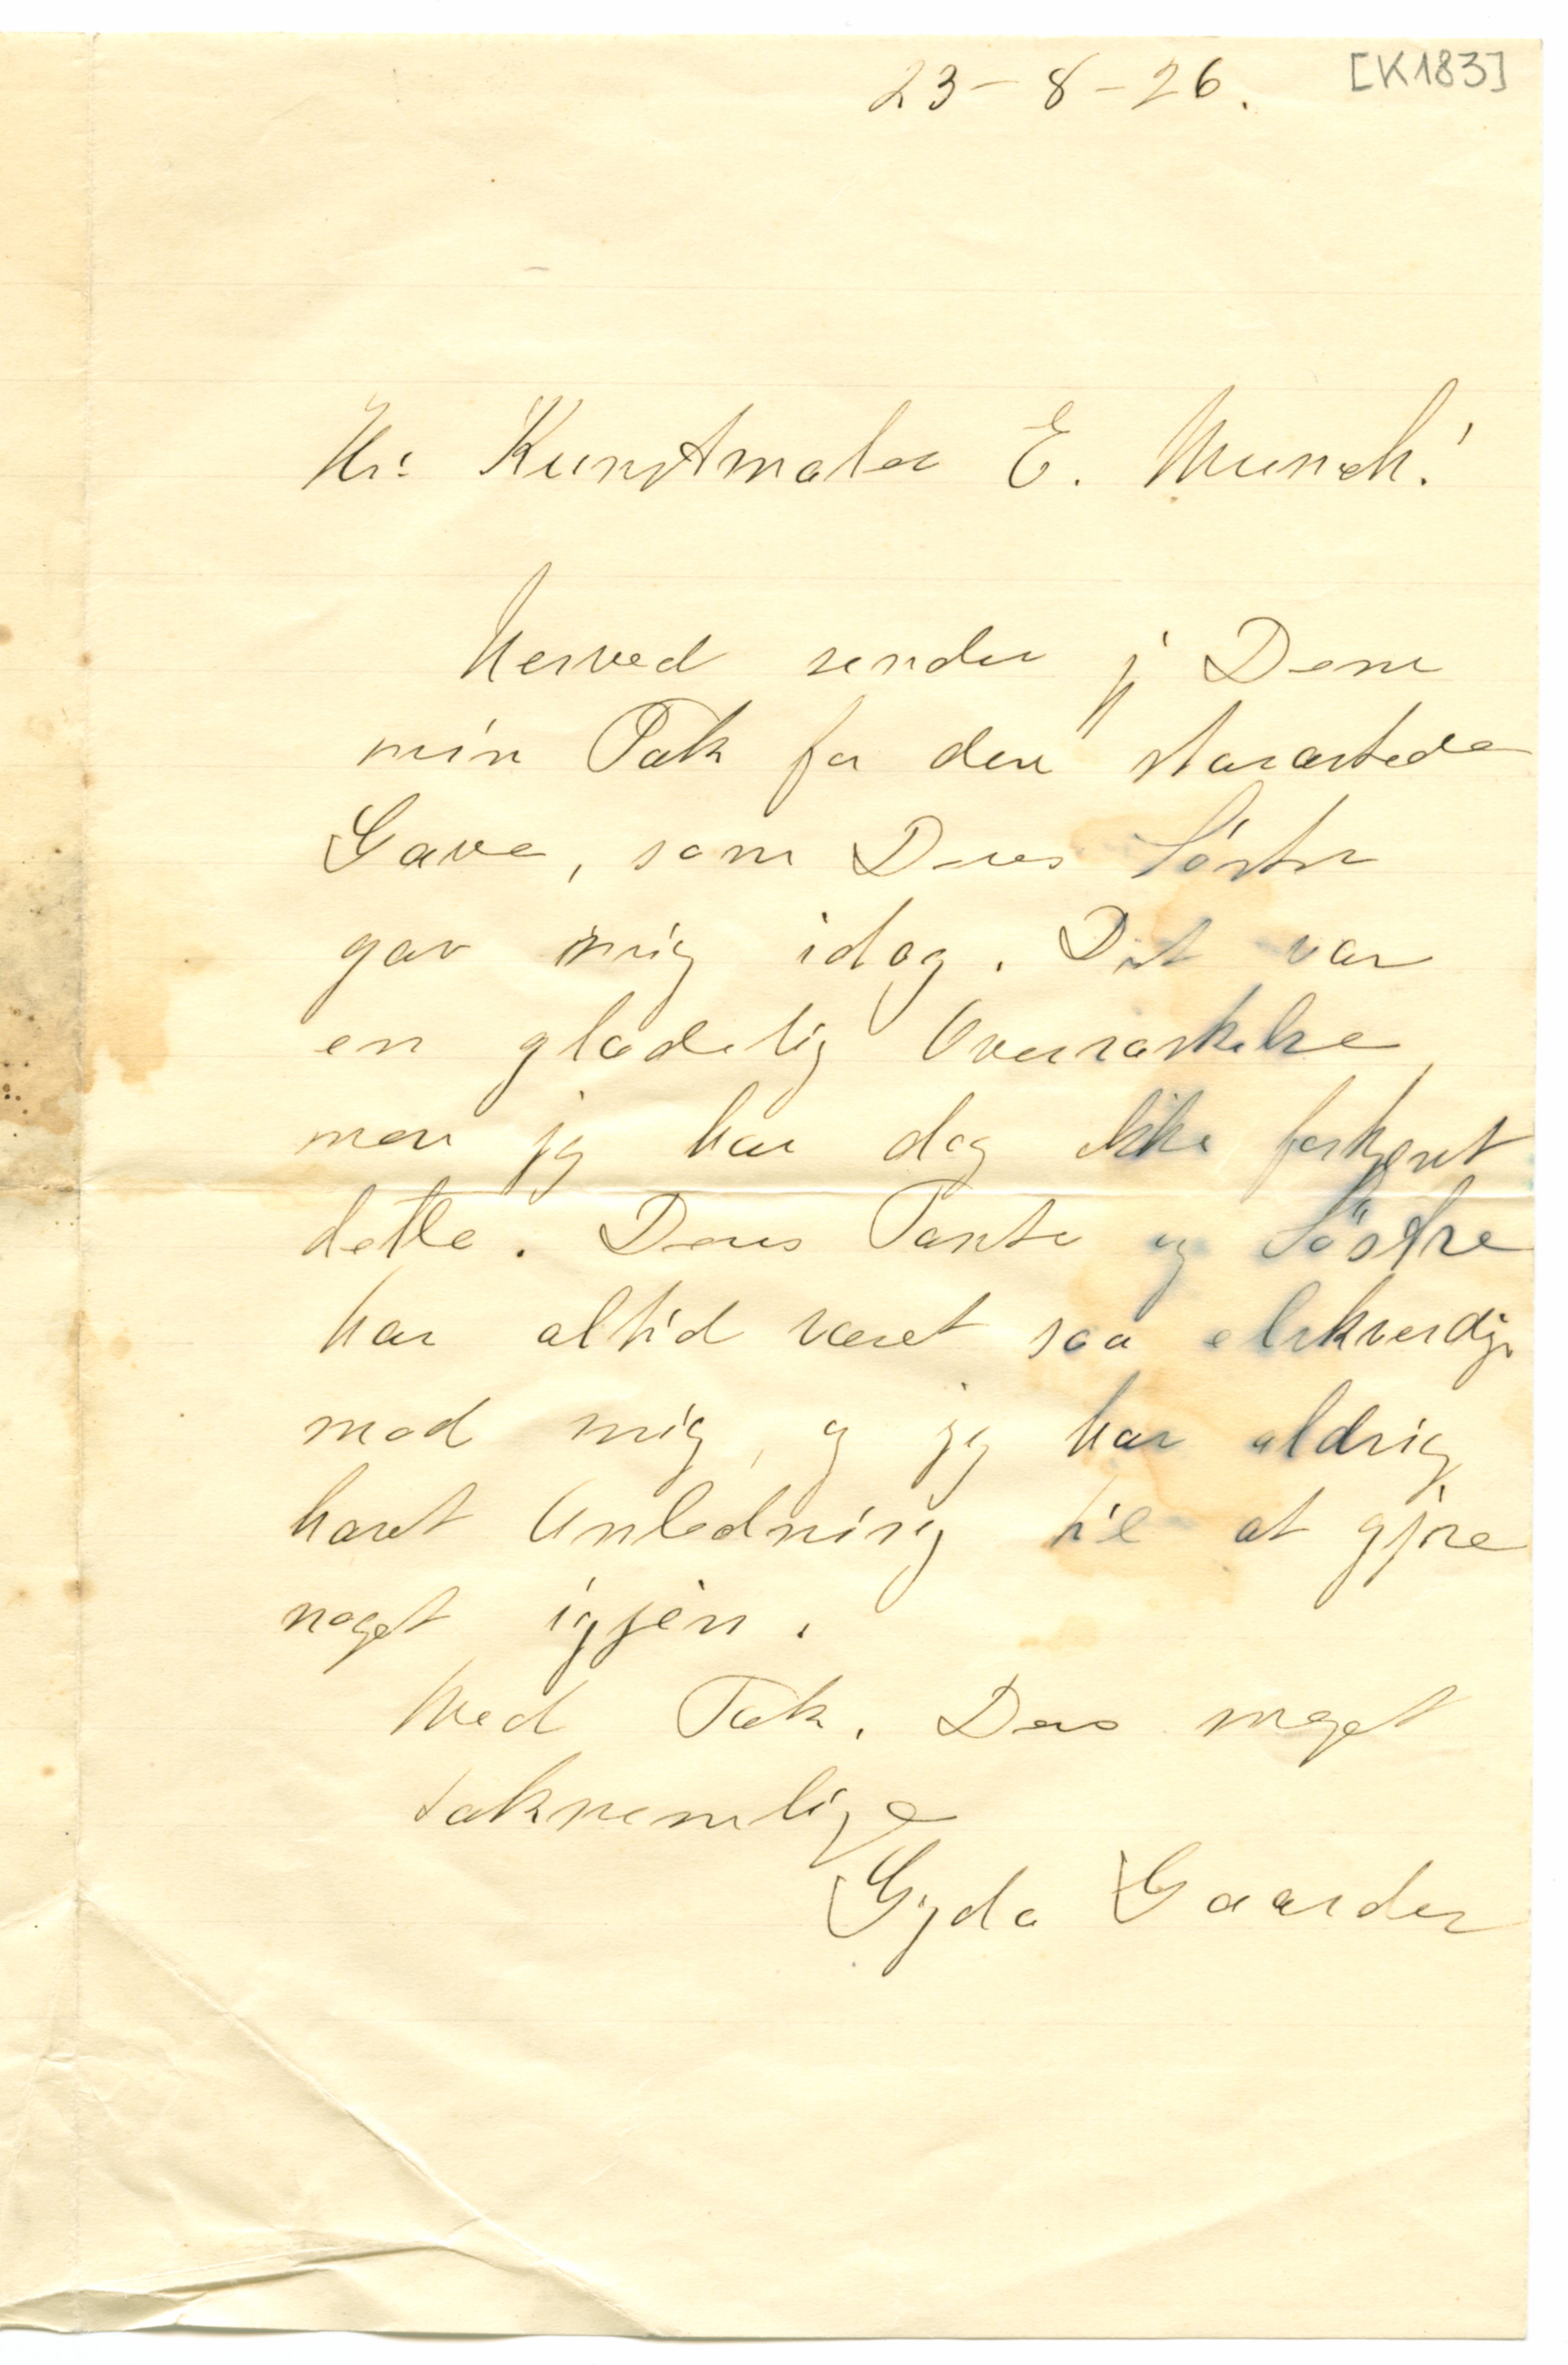 23-8-26. [K183]
Hr: Kunstmaler E. Munch!
Herved sender jg Dem
min Tak for den storartede
Gave, som Deres Söster
gav mig idag. Det var
en gladelig Overraskelse,
men jeg har dog ikke fortjent
dette. Deres Tante og Söstre
har altid været saa elskverdige
mod mig, og jeg har aldrig
havt Anledning til at gjøre
noget igjen.
Med Tak. Deres meget
taknemlige
Gyda Gaarder